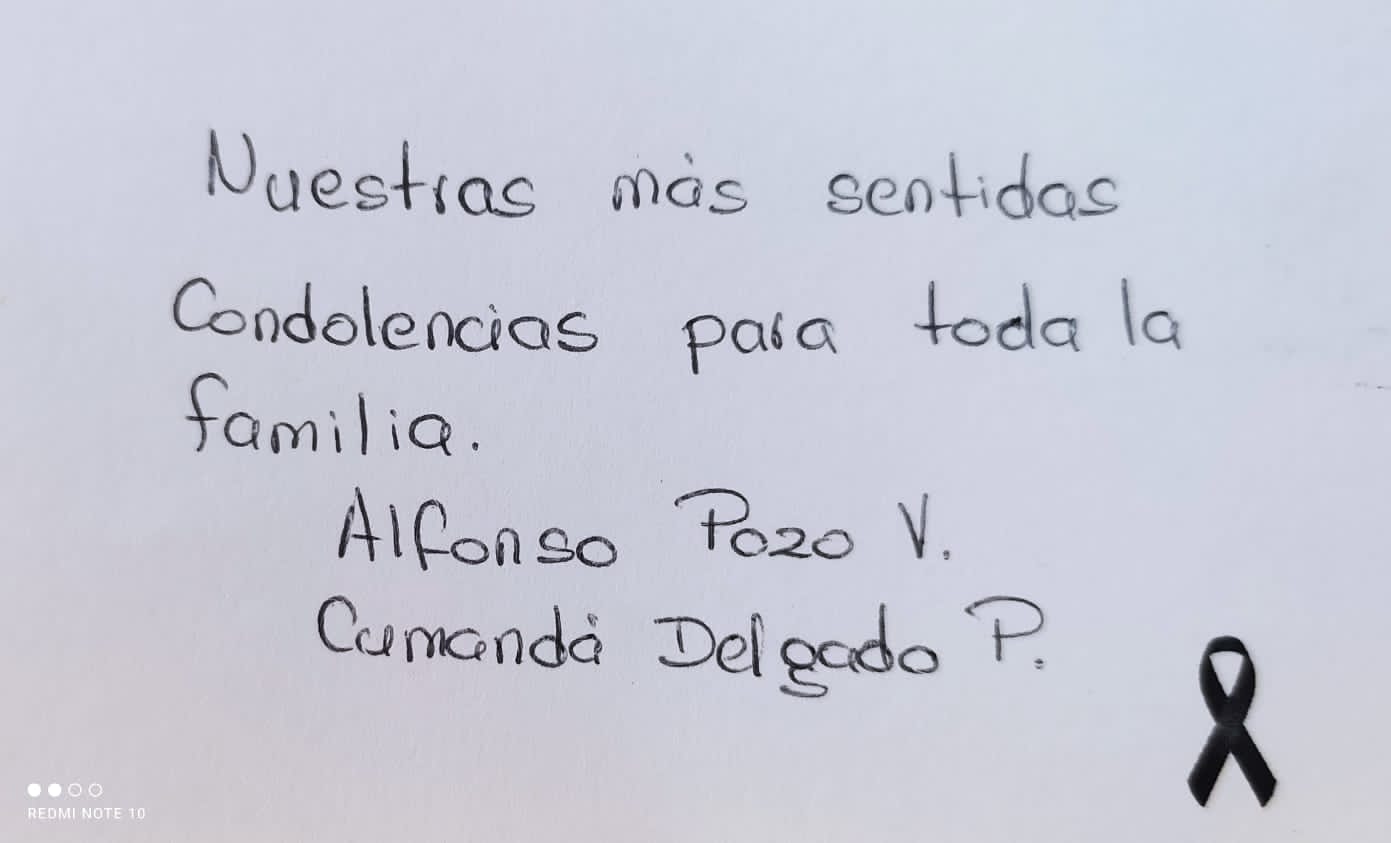 Nuestras más sentidas
Condolencias para toda la
familia.
Alfonso Pozo V.
Cumandá Delgado P.
REDMI NOTE 10